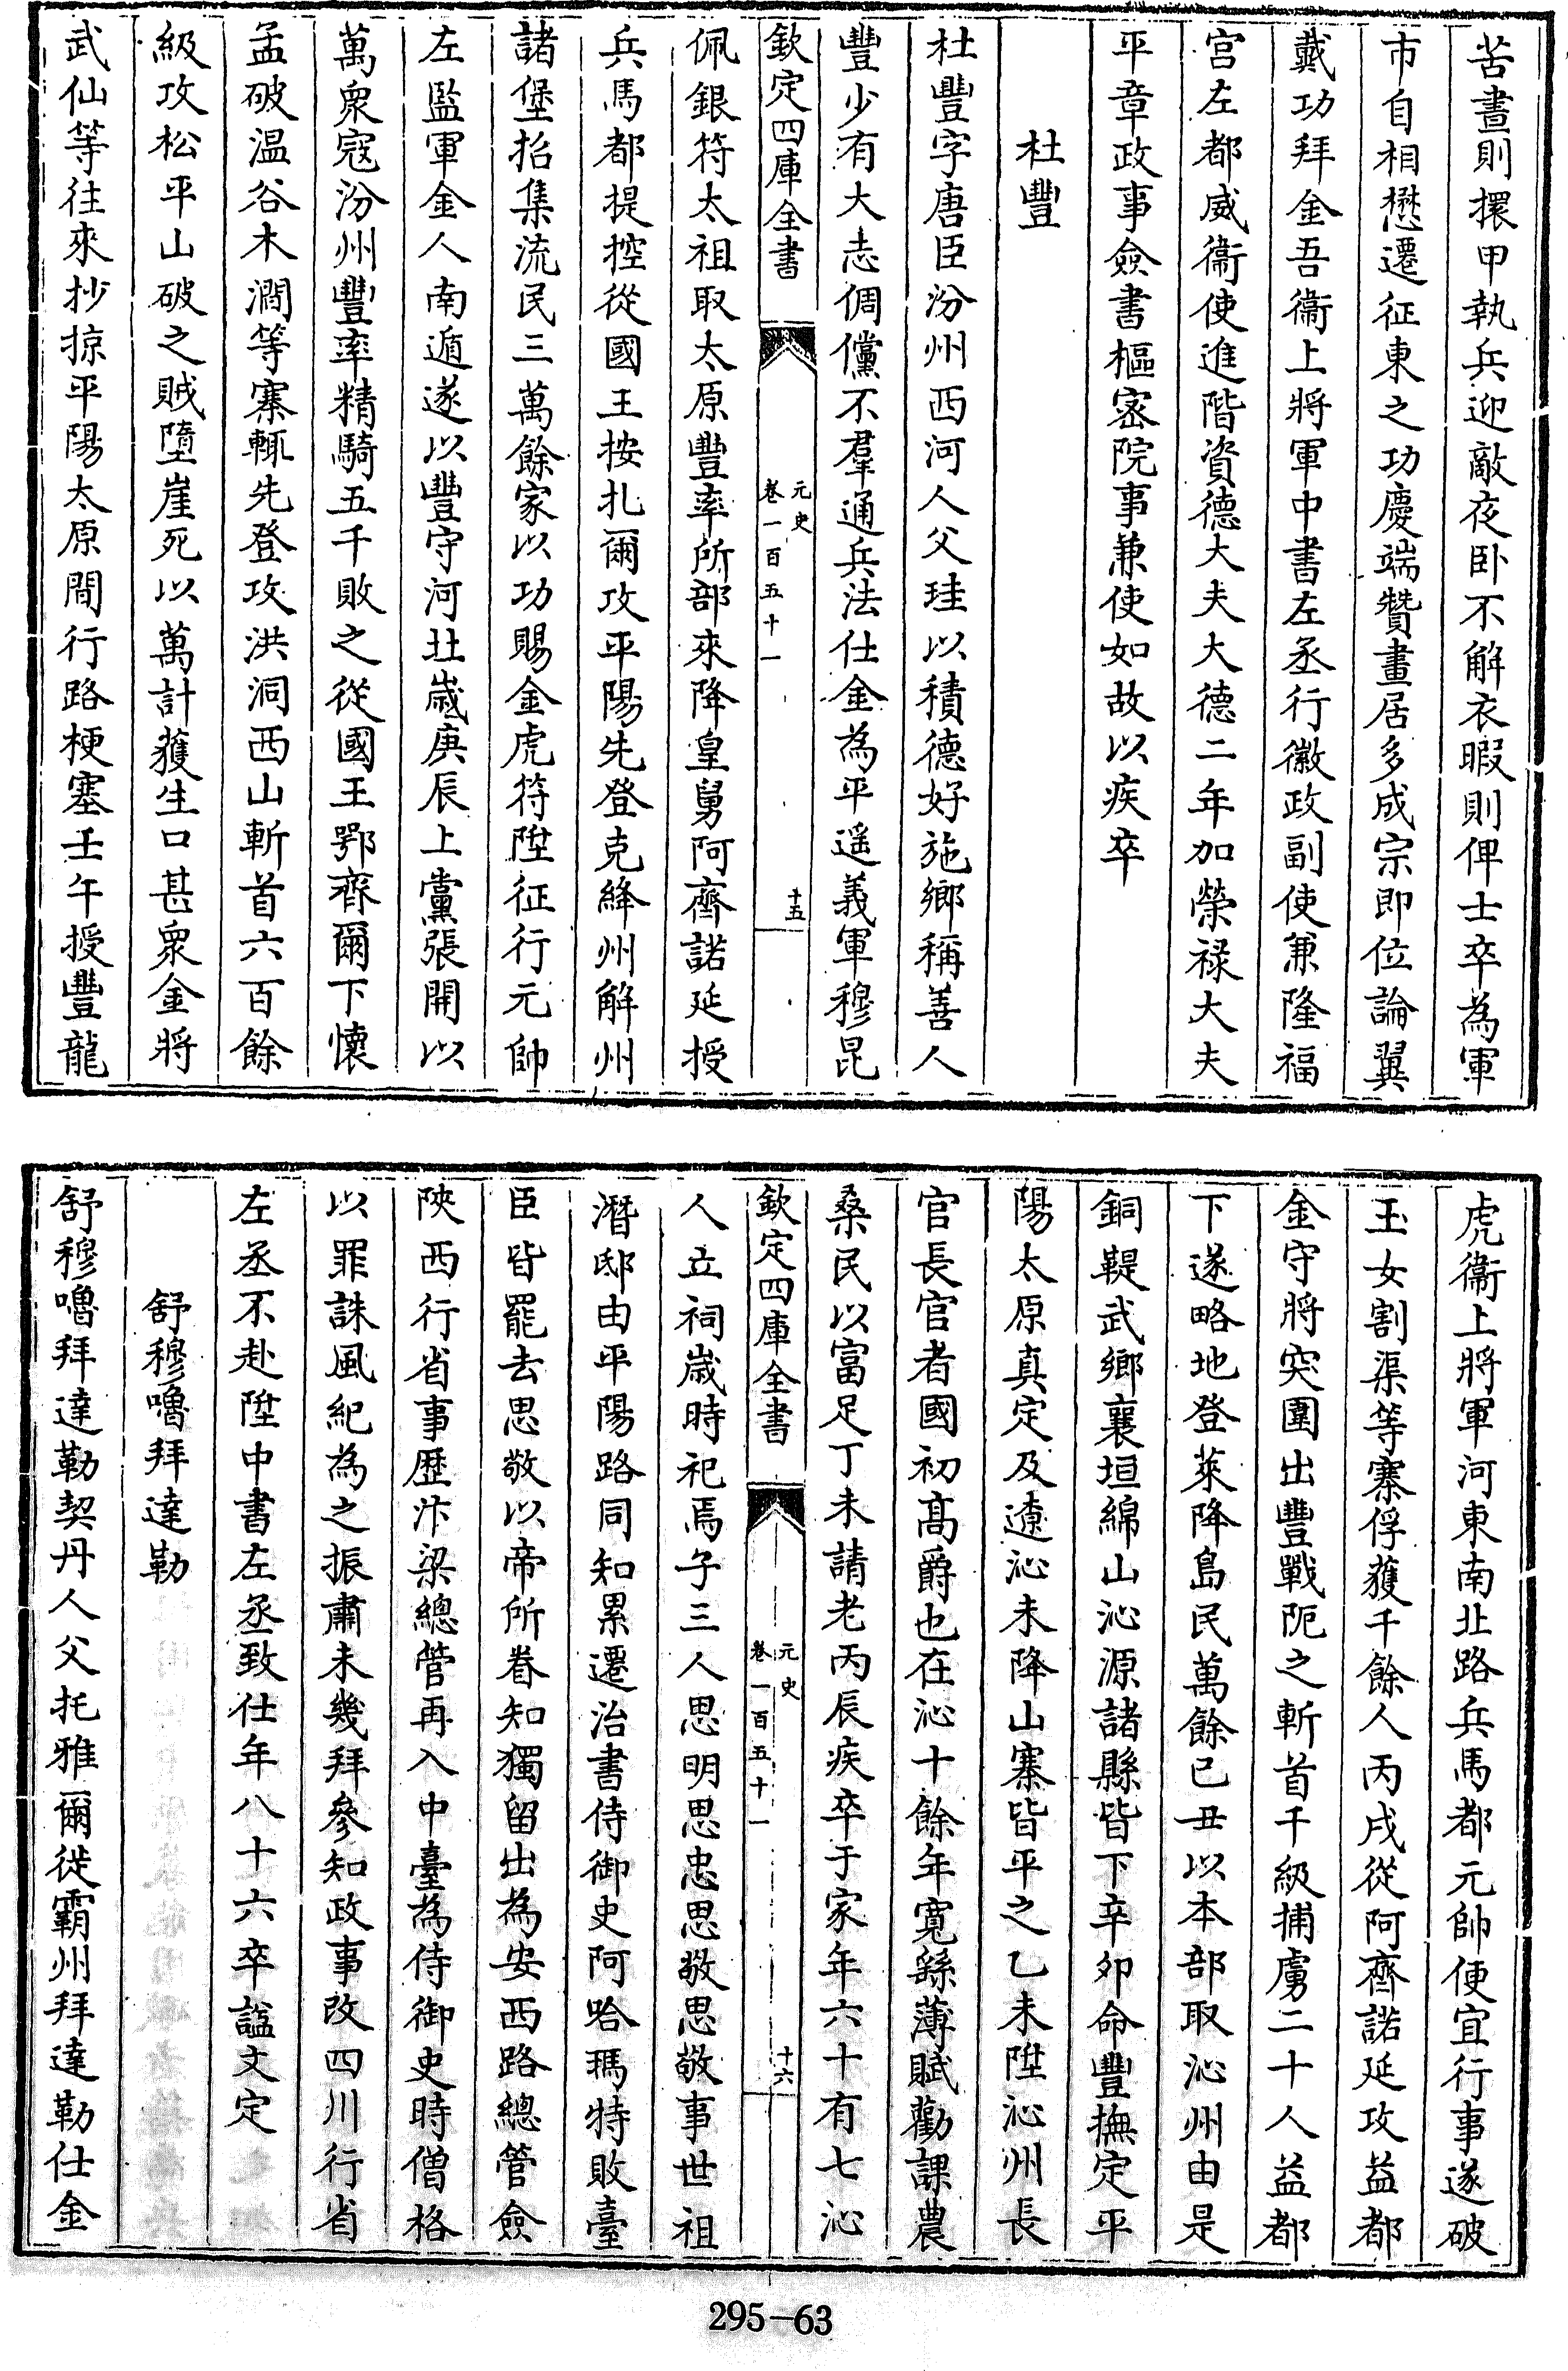 苦晝則擐甲執兵迎敵夜卧不解衣暇則俾士卒為軍
市自相懋遷征東之功慶端贊畫居多成宗即位論翼
戴功拜金吾衞上將軍中書左丞行徽政副使兼隆福
宫左都威衞使進階資德大夫大德二年加榮禄大夫
平章政事僉書樞密院事兼使如故以疾卒
杜豐
杜豐字唐臣汾州西河人父珪以積德好施鄉稱善人
豐少有大志倜儻不羣通兵法仕金為平遥義軍穆昆
欽定四庫全書
元史
卷一百五十一
十五
佩銀符太祖取太原豐率所部來降皇舅阿齊諾延授
兵馬都提控從國王按扎爾攻平陽先登克絳州解州
諸堡招集流民三萬餘家以功賜金虎符陞征行元帥
左監軍金人南遁遂以豐守河北歲庚辰上黨張開以
萬衆寇汾州豐率精騎五千敗之從國王鄂齊爾下懷
孟破温谷木澗等寨輒先登攻洪洞西山斬首六百餘
級攻松平山破之賊墮崖死以萬計獲生口甚衆金將
武仙等往來抄掠平陽太原間行路梗塞壬午授豐龍
虎衞上將軍河東南北路兵馬都元帥便宜行事遂破
玉女割渠等寨俘獲千餘人丙戌從阿齊諾延攻益都
金守將突圍出豐戰阨之斬首千級捕虜二十人益都
下遂略地登萊降島民萬餘已丑以本部取沁州由是
銅鞮武鄉襄垣綿山沁源諸縣皆下辛卯命豐撫定平
陽太原真定及遼沁未降山寨皆平之乙未陞沁州長
官長官者國初髙爵也在沁十餘年寛繇薄賦勸課農
桑民以富足丁未請老丙辰疾卒于家年六十有七沁
欽定四庫全書
元史
卷一百五十一
十六
人立祠歲時祀焉子三人思明思忠思敬思敬事世祖
潛邸由平陽路同知累遷治書侍御史阿哈瑪特敗臺
臣皆罷去思敬以帝所眷知獨留出為安西路總管僉
陜西行省事歴汴梁總管再入中臺為侍御史時僧格
以罪誅風紀為之振肅未幾拜參知政事改四川行省
左丞不赴陞中書左丞致仕年八十六卒諡文定
舒穆嚕拜達勒
舒穆嚕拜達勒契丹人父托雅爾徙霸州拜達勒仕金
295-63